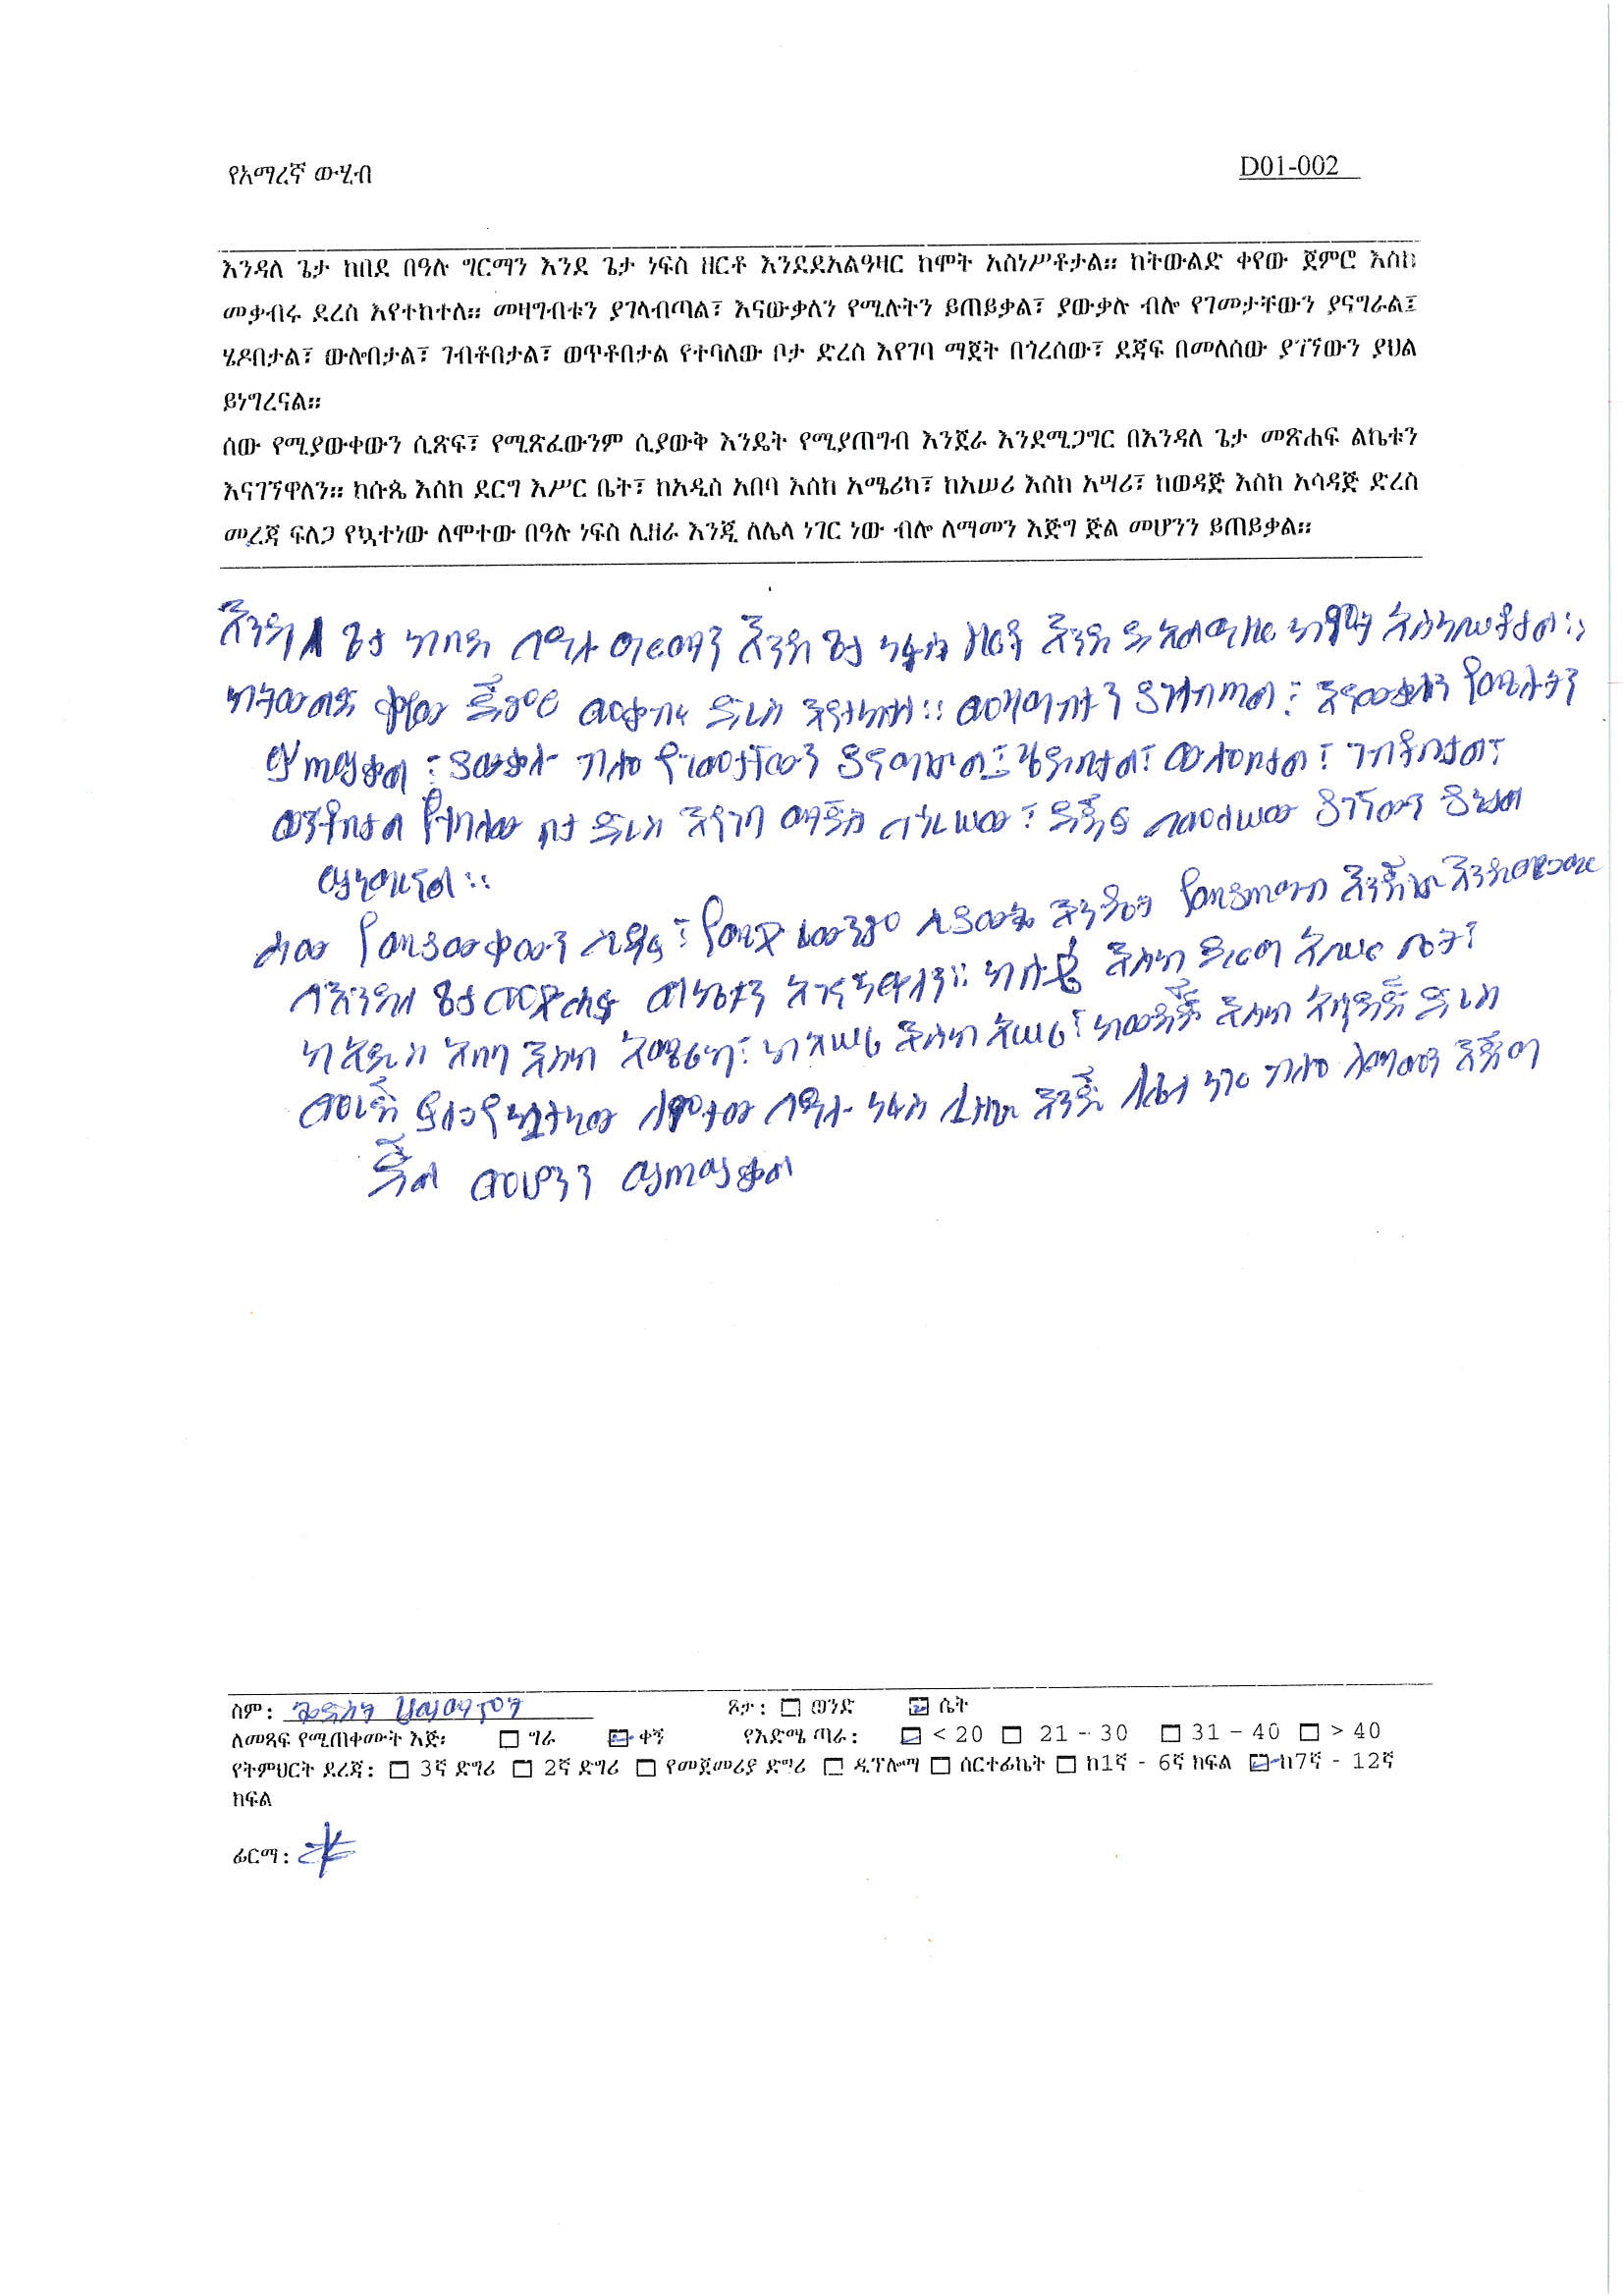 የአማረኛ ውሂብ
D01-002
እንዳለ ጌታ ከበደ በዓሉ ግርማን እንደ ጌታ ነፍስ ዘርቶ እንደደአልዓዛር ከሞት አስነሥቶታል። ከትውልድ ቀየው ጀምሮ እስከ
መቃብሩ ደረስ እየተከተለ። መዛግብቱን ያገላብጣል፣ እናውቃለን የሚሉትን ይጠይቃል፣ ያውቃሉ ብሎ የገመታቸውን ያናግራል፤
ሄዶበታል፣ ውሎበታል፣ ገብቶበታል፣ ወጥቶበታል የተባለው ቦታ ድረስ እየገባ ማጀት በጎረሰው፣ ደጃፍ በመለሰው ያገኘውን ያህል
ይነግረናል።
ሰው የሚያውቀውን ሲጽፍ፣ የሚጽፈውንም ሲያውቅ እንዴት የሚያጠግብ እንጀራ እንደሚጋግር በእንዳለ ጌታ መጽሐፍ ልኬቱን
እናገኘዋለን። ከሱጴ እስከ ደርግ እሥር ቤት፣ ከአዲስ አበባ እስከ አሜሪካ፣ ከአሠሪ እስከ አሣሪ፣ ከወዳጅ እስከ አሳዳጅ ድረስ
መረጃ ፍለጋ የኳተነው ለሞተው በዓሉ ነፍስ ሊዘራ እንጂ ለሌላ ነገር ነው ብሎ ለማመን እጅግ ጅል መሆንን ይጠይቃል።
እንዳለ ጌታ ከበደ በዓሉ ግርማን እንደ ጌታ ነፍስ ዘርቶ እንደ ደአልዓዛር ከሞት አስነሥቶታል።
ከትውልድ ቀየው ጀምሮ መቃብሩ ድረስ እየተከተለ። መዛግብቱን ያገላብጣል፣ እናውቃለን የሚሉትን
ይጠይቃል፣ ያውቃሉ ብሎ የገመታቸውን ያናግራል፤ ሄዶበታል፣ ውሎበታል፣ ገብቶበታል፣
ወጥቶበታል የተባለው ቦታ ድረስ እየገባ ማጀት በጎረሠው፣ ደጃፍ በመለሠው ያገኘውን ያህል
ይነግረናል።
ሰው የሚያውቀውን ሲጽፍ፣ የሚጽፈውንም ሲያውቅ እንዴት የሚያጠግብ እንጀራ እንደሚጋግር
በእንዳለ ጌታ መጽሐፍ ልኬቱን እናገኘዋለን። ከሱጴ እስከ ደርግ እሥር ቤት፣
ከአዲስ አበባ እስከ አሜሪካ፣ ከአሠሪ እስከ አሣሪ፣ ከወዳጅ እስከ አሳዳጅ ድረስ
መረጃ ፍለጋ የኳተነው ለሞተው በዓሉ ነፍስ ሊዘራ እንጂ ለሌላ ነገር ብሎ ለማመን እጅግ
ጅል መሆንን ይጠይቃል
ስም:
ጾታ: ወንድ ሴት
ለመጻፍ የሚጠቀሙት እጅ፡ ግራ ቀኝ የእድሜ ጣራ: < 20 21 - 30 31 - 40 > 40
የትምህርት ደረጃ: 3ኛ ድግሪ 2ኛ ድግሪ የመጀመሪያ ድግሪ ዲፕሎማ ሰርተፊኬት ከ1ኛ - 6ኛ ክፍል ከ7ኛ - 12ኛ
ክፍል
ፊርማ: